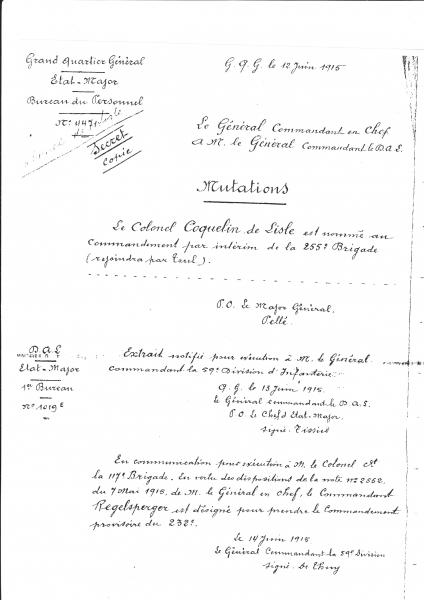 Grand Quartier Général
Etat-Major
Bureau du Personnel
N° 4471
Secret
copie
G. Q. G. le 12 Juin 1915
Le Général Commandant en Chef
à M. le Général Commandant le D.A.L.
Mutations
Le Colonel Coquelin de Lisle est nommé au
Commandement par intérim de la 255e Brigade
(rejoindra par Toul).
P.O. Le Major Général,
Pellé
D.A.L.
Etat-Major
1er Bureau
N° 1019 E
Extrait notifié pour exécution à M. le Général
commandant la 59e Division d'Infanterie
Q.G. le 13 Juin 1915.
le Général commandant le D.A.L.
P.O. le Chef d'Etat-Major.
signé: Tissier
En communication pour exécution à M. le Colonel Ct
la 117e Brigade. En vertu des dispositions de la note n° 2552.
du 7 Mai 1915, de M. le Général en Chef, le Commandant
Regelsperger est désigné pour prendre le Commandement
provisoire du 232e.
Le 14 Juin 1915
Le Général Commandant la 59e Division
signé: